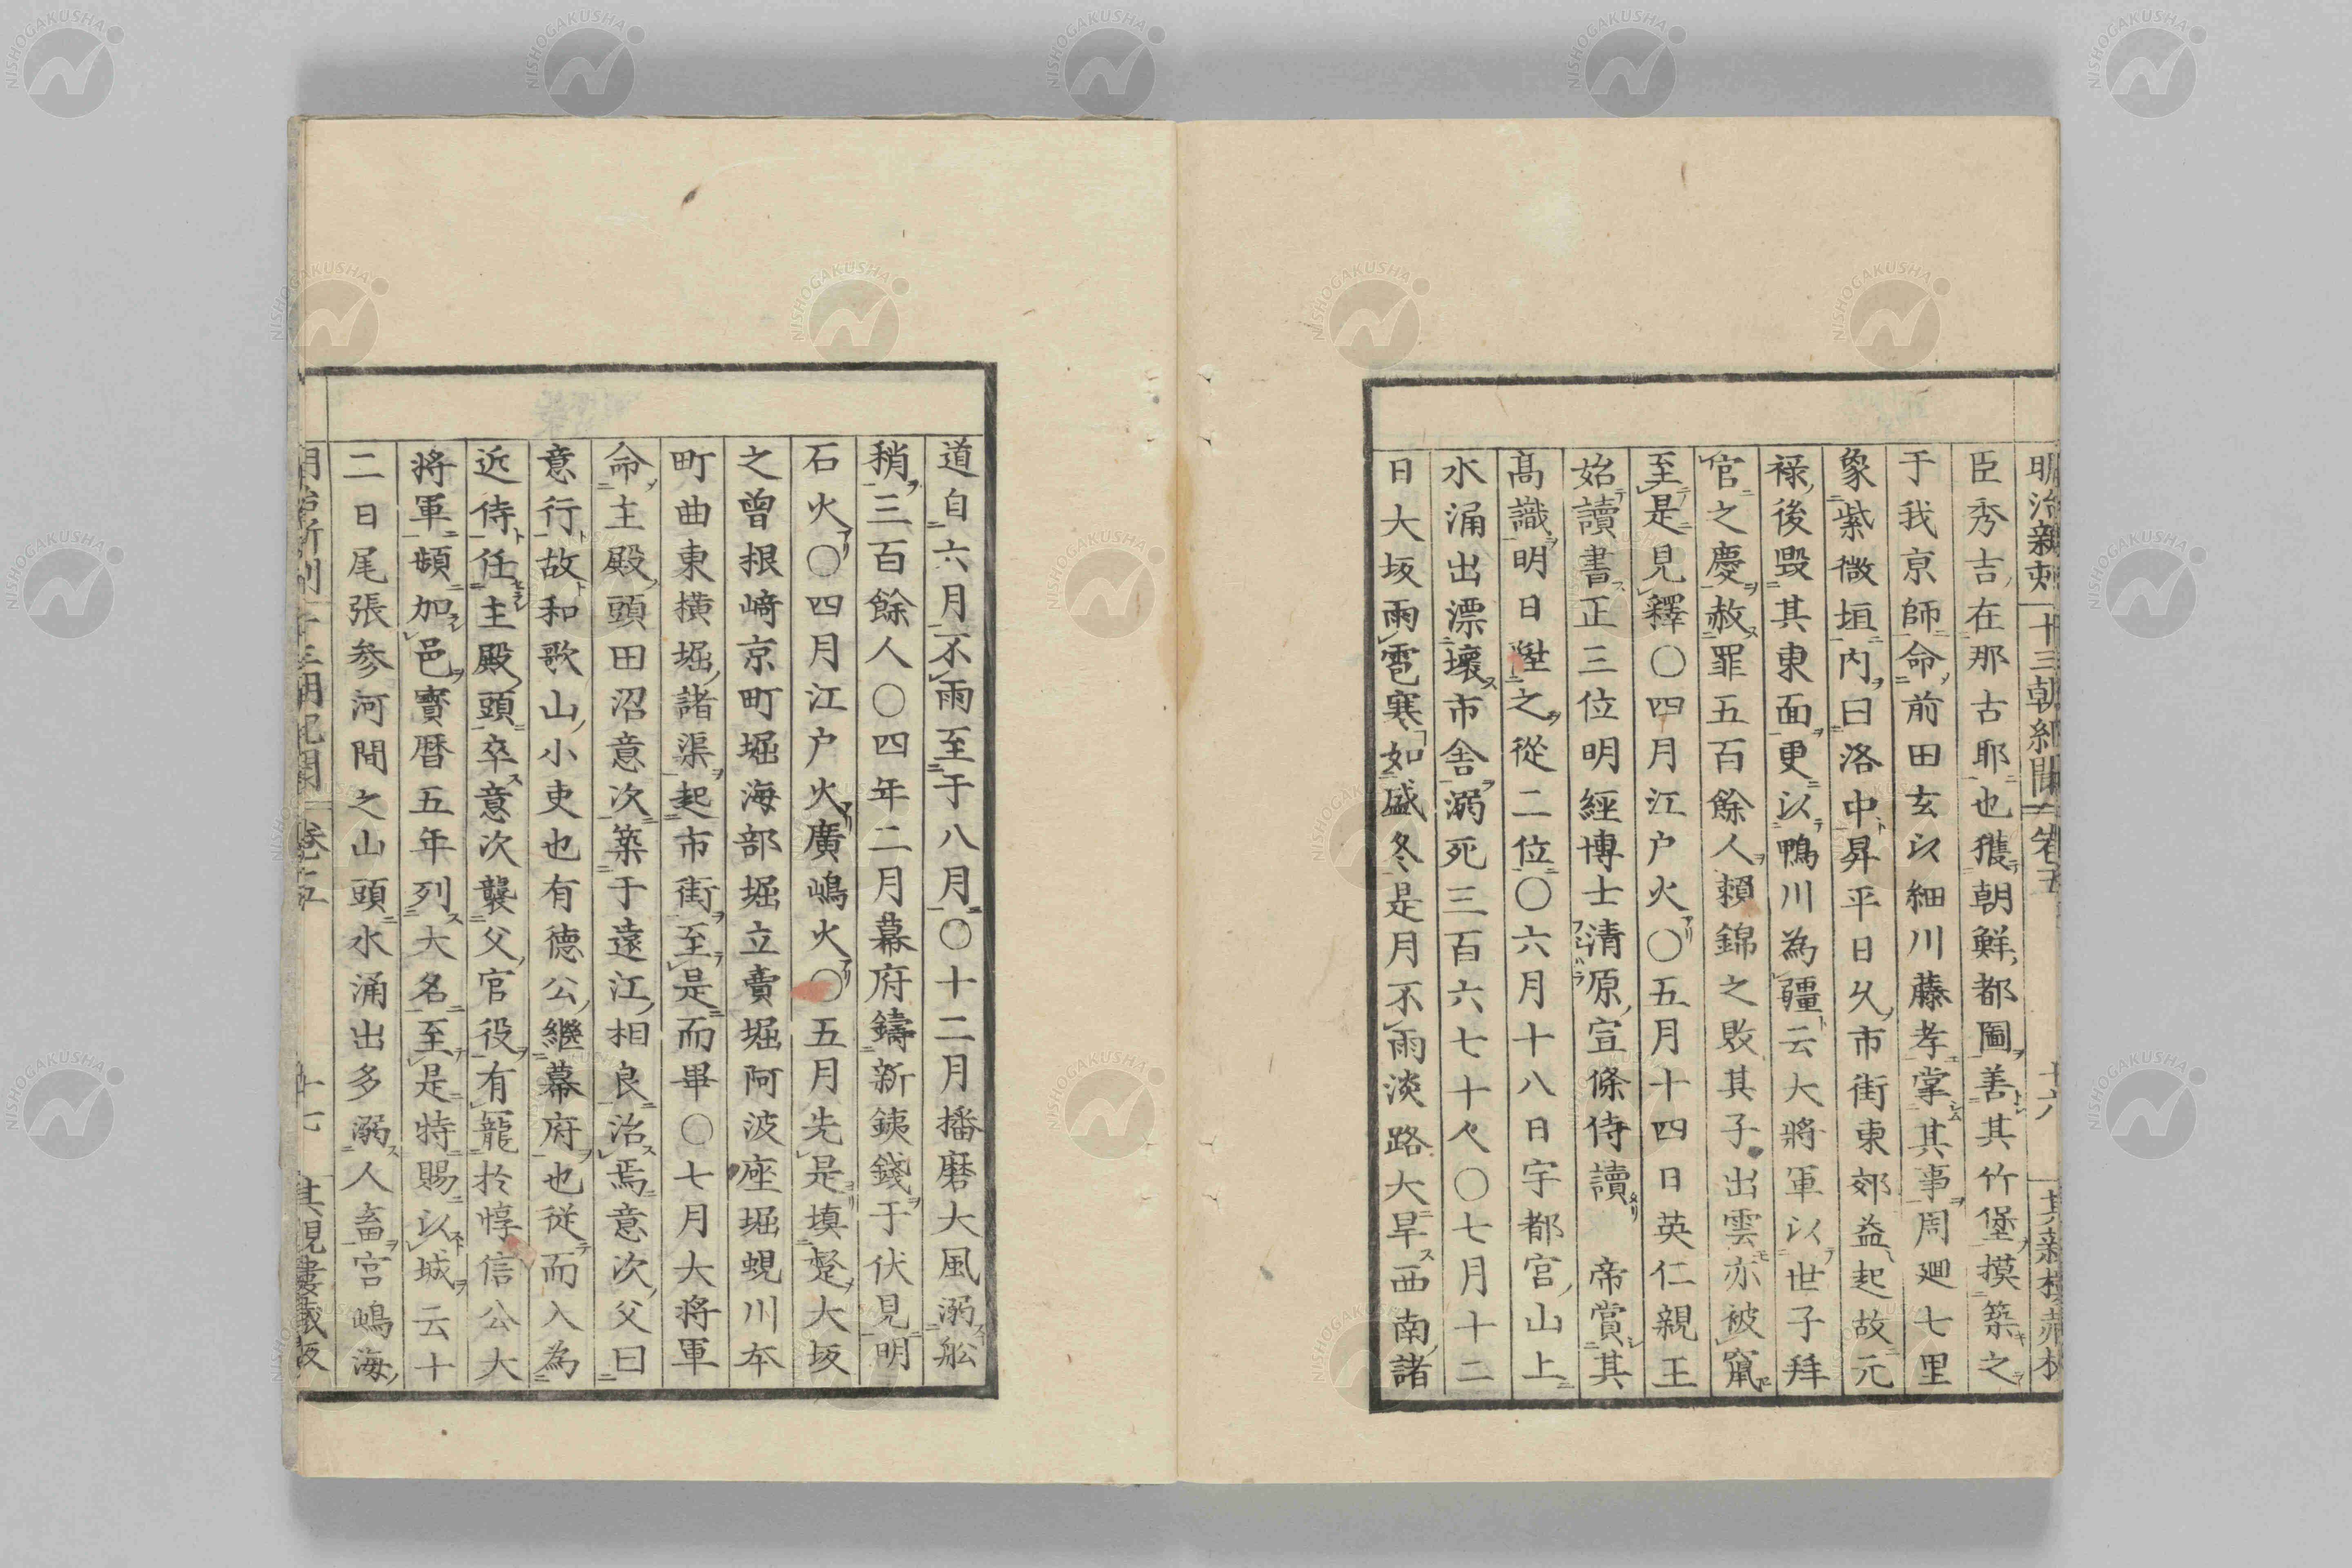 明治新刻 十三朝紀聞 卷五 十六 其親樓藏板
臣秀吉在那古耶也獲朝鮮都圖善其竹堡摸築之
于我京師命前田玄以細川藤孝掌其事周廻七里
象紫微垣内曰洛中昇平日久市街東郊益起故元
祿後毀其東面更以鴨川為疆云大將軍以世子拜
官之慶赦罪五百餘人賴錦之敗其子出雲亦被竄
至是見釋〇四月江户火〇五月十四日英仁親王
始讀書正三位明經博士清原宣條侍讀 帝賞其
高識明日陞之從二位〇六月十八日宇都宮山上
水涌出漂壞市舍溺死三百六七十人〇七月十二
日大坂雨雹寒如盛冬是月不雨淡路大旱西南諸
道自六月不雨至于八月〇十二月播磨大風溺舩
稍三百餘人〇四年二月幕府鑄新銕錢于伏見明
石火〇四月江户火廣嶋火〇五月先是填壍大坂
之曾根崎京町堀海部堀立賣堀阿波座堀蜆川夲
町曲東横堀諸渠起市街至是而畢〇七月大將軍
命主殿頭田沼意次築于遠江相良治焉意次父曰
意行故和歌山小吏也有德公繼幕府也從而入為
近侍任主殿頭卒意次襲父官役有寵於惇信公大
將軍頻加邑寶暦五年列大名至是特賜以城云十
二日尾張参河間之山頭水涌出多溺人畜宮嶋海
明治新刻 十三朝紀聞 卷五 十七 其親樓藏板
NISHOGAKUSHA